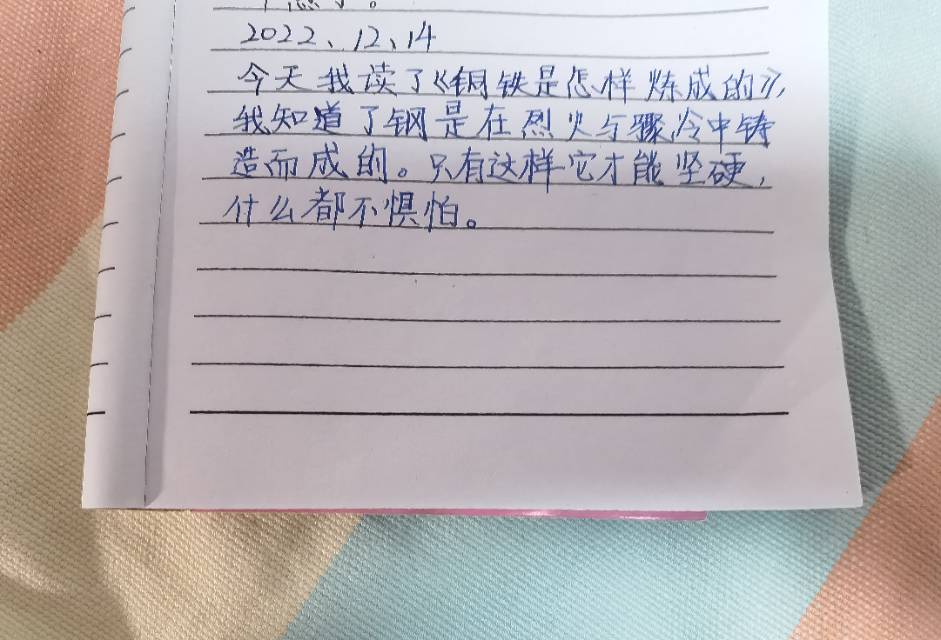 2022、12、14
今天我读了《钢铁是怎样炼成的》,
我知道了钢是在烈火与骤冷中铸
造而成的。只有这样它才能坚硬,
什么都不惧怕。